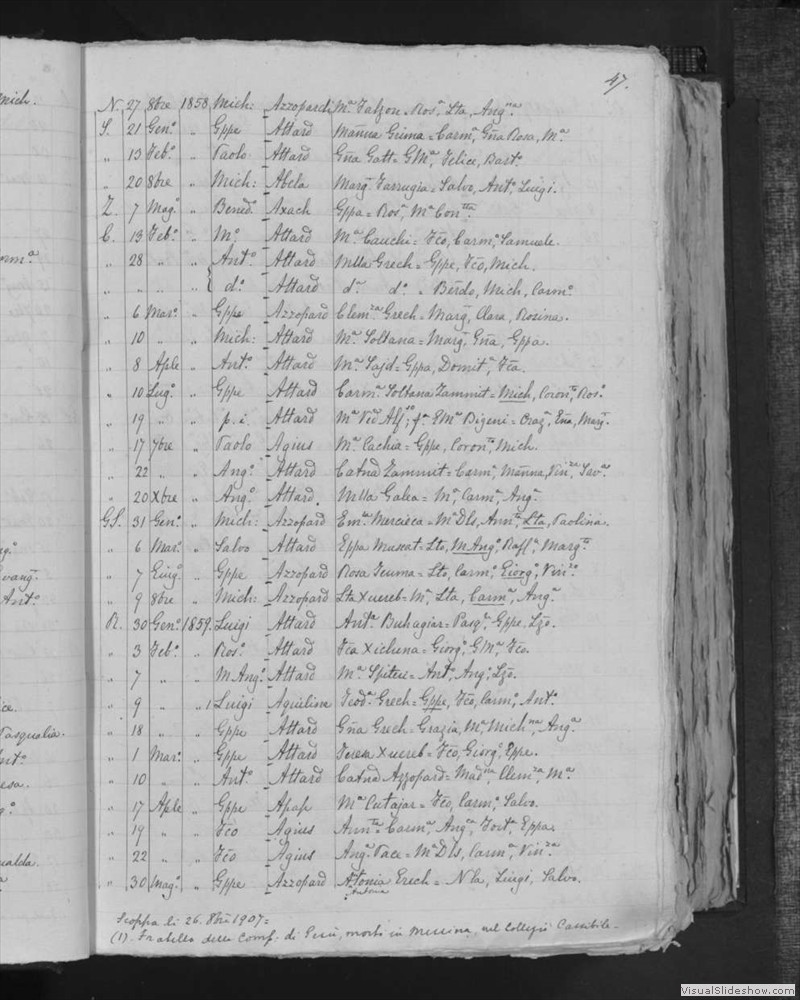 47.
N. 27 8bre 1858 Mich: Azzopardi Mª Falzon = Rosª, Lta, Angna
S. 21 Genº „ Gppe Attard Manna Grima = Carmª, Gña Rosa, Mª
„ 13 Febº „ Paolo Attard Gña Gatt = GMª, Felice, Bartº
„ 20 8bre „ Mich: Abela Margª Farrugia = Salvo, Antº, Luigi.
Z. 7 Magº „ Benedº Axach Gppa = Rosª, Mª Contta
C. 13 Febº „ Mº Attard Mª Cauchi = Fco, Carmº, Samuele.
„ 28 „ „ Antº Attard Mlla Grech = Gppe, Fco, Mich.
„ „ „ „ dº Attard dª dª „ Berdo, Mich, Carmº
„ 6 Marº „ Gppe Azzopard Clemza Grech = Margª, Clara, Rosina.
„ 10 „ „ Mich: Attard Mª Soltana = Margª, Gña, Gppa.
„ 8 Aple „ Antº Attard Mª Sajd = Gppa, Domitª, Fca.
„ 10 Lugº „ Gppe Attard Carmª Soltana Zammit = Mich, Coronta, Rosª
„ 19 „ „ p. i. Attard Mª Ved Alfso; fª EMª Bigeni = Orazº, Eña, Margª.
„ 17 7bre „ Paolo Agius Mª Cachia = Gppe, Coronta, Mich.
„ 22 „ „ Angº Attard Catna Zammit = Carmª, Manna, Vinza, Savª
„ 20 Xbre „ Angº Attard. Mlla Galea = Mª, Carmª, Angª
GS. 31 Genº „ Mich: Azzopard Emla Mercieca = MªDls, Annta, Lta, Paolina.
„ 6 Marº „ Salvo Attard Gppa Muscat = Lto, MAngº, Raflª, Margta
„ 7 Giugº „ Gppe Azzopard Rosa Teuma = Lto, Carmª, Giorgº, Vinzo.
„ 9 8bre „ Mich: Azzopard Lta Xuereb = Mª, Lta, Carmª, Angª
R. 30 Genº 1859. Luigi Attard Antª Buhagiar = Pasqª, Gppe, Lzo.
„ 3 Febº „ Rosº Attard Fca Xicluna = Giorgº, GMª, Fco.
„ 7 „ „ MAngº Attard Mª Spiteri = Antº, Angº, Lzo.
„ 9 „ „ 1 Luigi Aquilina Teodª Grech = Gppe, Fco, Carmº, Antº.
„ 18 „ „ Gppe Attard Gña Grech = Grazia, Mª, Michna, Angª
„ 1 Marº „ Gppe Attard Teresa Xuereb = Fco, Giorgº, Gppe.
„ 10 „ „ Antº Attard Catna Azzopard = Madna, Clemza, Mª
„ 17 Aple „ Gppe Apap Mª Cutajar = Fco, Carmº, Salvo.
„ 19 „ „ Fco Agius Annta = Carmª, Angª, Fortª, Gppa.
„ 22 „ „ Fco Agius Angª Pace = MªDls, Carmª, Vinza
„ 30 Magº „ Gppe Azzopard Antonia Grech = Nla, Luigi, Salvo.
Antonia
Scoppa li 26. 8bre 1907 =
(1). Fratello della Comp. di Gesù, morto in Messina, nel Collegio Cassibile.
mich.
ormª
vangª
Antº
Pasqualia.
VisualSlideshow.com